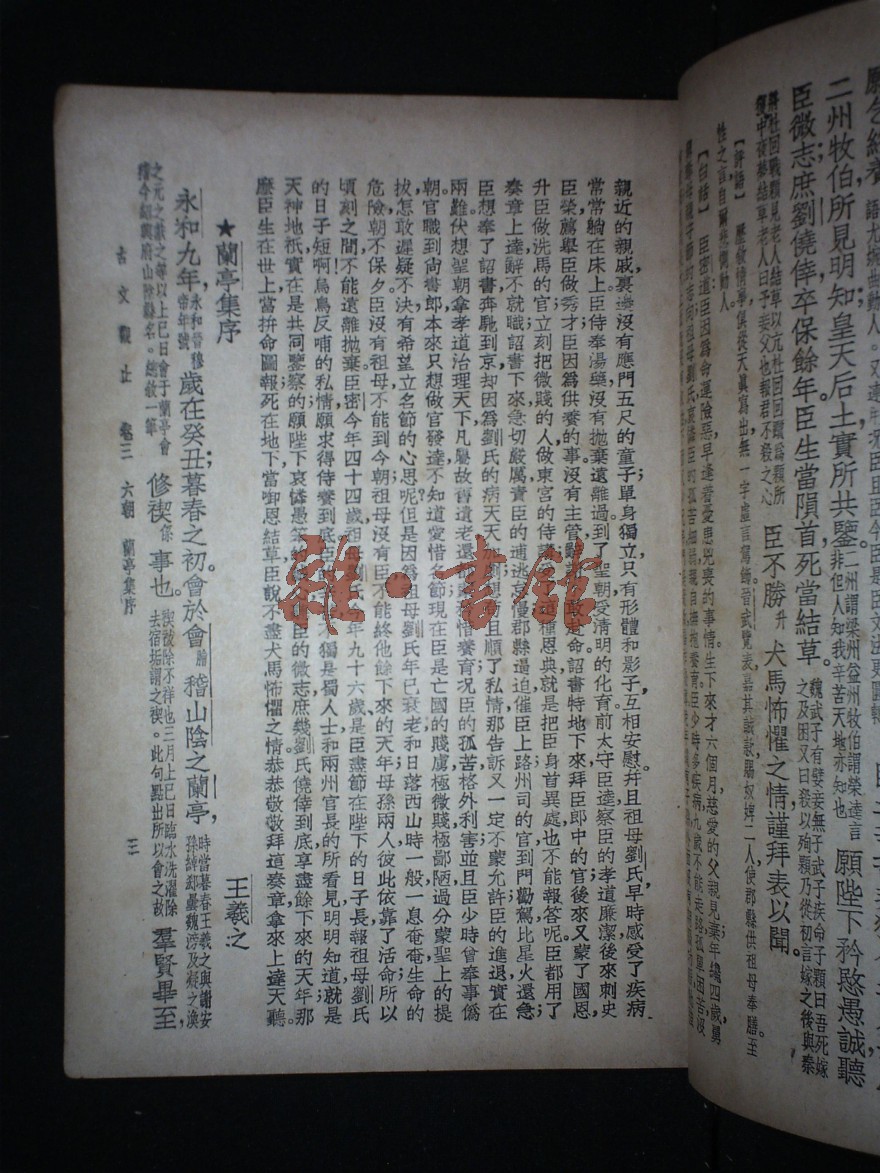 二州牧伯所見明知皇天后土實所共鑒。二州謂梁州益州牧伯謂榮逵言非但人知我辛苦天地亦知也願陛下矜愍愚誠聽
臣微志庶劉僥倖卒保餘年臣生當隕首死當結草。魏武子有嬖妾無子武子疾命子顆曰吾死嫁之及困又曰殺以殉顆乃從初言嫁之後與秦
將杜回戰顆見老人結草以亢杜回回躓爲顆所獲中夜夢結草老人曰予妾父也報君不殺之心臣不勝升犬馬怖懼之情謹拜表以聞。
【評語】歷敘情事俱從天眞寫出無一字虛言駕飾晉武覽表嘉其誠款賜奴婢二人使郡縣供祖母奉膳至
性之言自爾悲惻動人。
【白話】臣密道臣因爲命運險惡早逢着憂思兇喪的事情生下來才六個月慈愛的父親見棄年纔四歲舅
親近的親戚裏邊沒有應門五尺的童子單身獨立只有形體和影子互相安慰幷且祖母劉氏早時感受了疾病
常常躺在床上臣侍奉湯藥沒有拋棄遠離過到了聖朝受清明的化育前太守臣逵察臣的孝道廉潔後來刺史
臣榮薦舉臣做秀才臣因爲供養的事沒有主管辭敢赴命詔書特地下來拜臣郎中的官後來又蒙了國恩
升臣做洗馬的官立刻把微賤的人做東宮的侍種恩典就是把臣身首異處也不能報答呢臣都用了
奏章上達辭不就職詔書下來急切嚴厲責臣的逋逃怠慢郡縣逼迫催臣上路州司的官到門勸駕比星火還急
臣想奉了詔書奔馳到京却因爲劉氏的病天天想勉且順了私情那告訴又一定不蒙允許臣的進退實在
兩難伏想聖朝拿孝道治理天下凡屬故舊遺老還惜養育况臣的孤苦格外利害並且臣少時曾奉事僞
朝官職到尚書郎本來只想做官發達不知道愛惜名節現在臣是亡國的賤虜極微賤極鄙陋過分蒙聖上的提
拔怎敢遲疑不決有希望立名節的心思呢但是因爲祖母劉氏年已衰老和日落西山時一般一息奄奄生命的
危險朝不保夕臣沒有祖母不能到今朝祖母沒有臣不能終他餘下來的天年母孫兩人彼此依靠了活命所以
頃刻之間不能遠離拋棄臣密今年四十四歲祖母劉氏今年九十六歲是臣盡節在陛下的日子長報祖母劉氏
的日子短啊烏鳥反哺的私情願求得侍養到底臣不獨是蜀人士和兩州官長的所看見明明知道就是
天神地祇實在是共同鑒察的願陛下哀憐愚臣的微志庶幾劉氏僥倖到底享盡餘下來的天年那
麽臣生在世上當拚命圖報死在地下當啣恩結草臣說不盡犬馬怖懼之情恭恭敬敬拜道奏章拿來上達天聽。
★蘭亭集序 王羲之
永和九年，永和晉穆帝年號歲在癸丑暮春之初會於會膾稽山陰之蘭亭，時當暮春王羲之與謝安孫綽郄曇魏滂及凝之渙
之元之獻之等以上巳日會于蘭亭會稽今紹興府山陰縣名。總敘一筆修禊係事也。禊祓除不祥也三月上巳日臨水洗濯除去宿垢謂之禊。此句點出所以會之故羣賢畢至
古文觀止 卷三 六朝 蘭亭集序 三
雜·書館